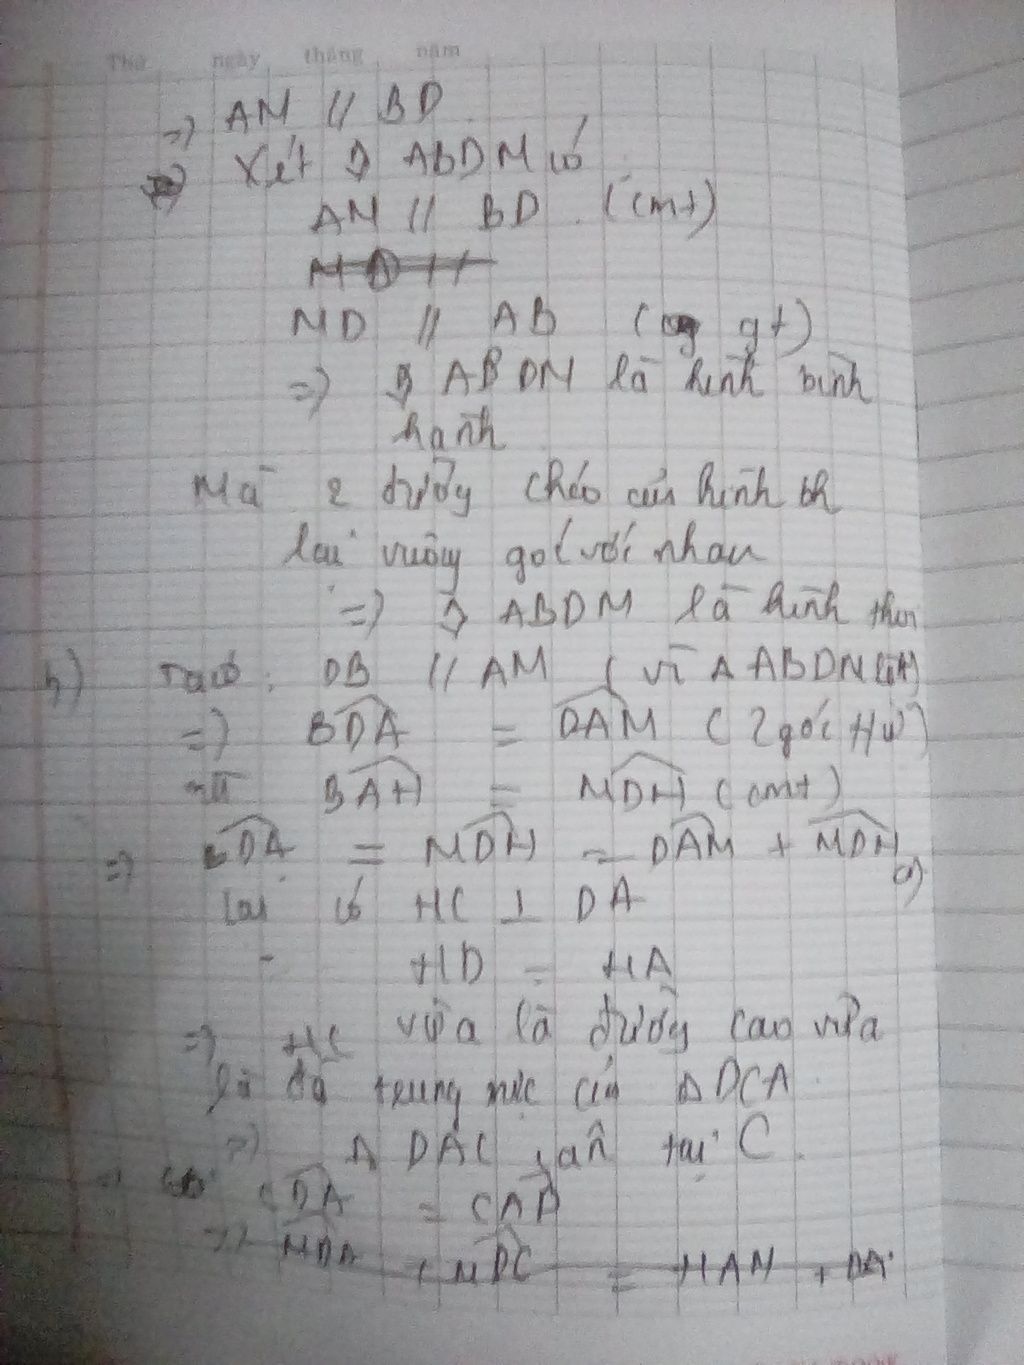 Thứ ngày tháng năm
=> AM // BD
Xét ◊ ABDM có
AM // BD (cmt)
MD // AB ( gt)
=> ◊ ABDM là hình bình
hành
Mà 2 đường chéo của hình bh
lại vuông góc với nhau
=> ◊ ABDM là hình thoi
b) Ta có: DB // AM ( vì ABDM
=> BDA = DAM ( 2 góc
mà BAH = MDH (cmt)
=> BDA = MDH = DAM + MDH
lại có HC ⊥ DA
HD = HA
=> HC vừa là đường cao vừa
là đg trung trực của Δ DCA
=> Δ DAC cân tại C
CDA = CAD
=> MDA + MDC = HAM +